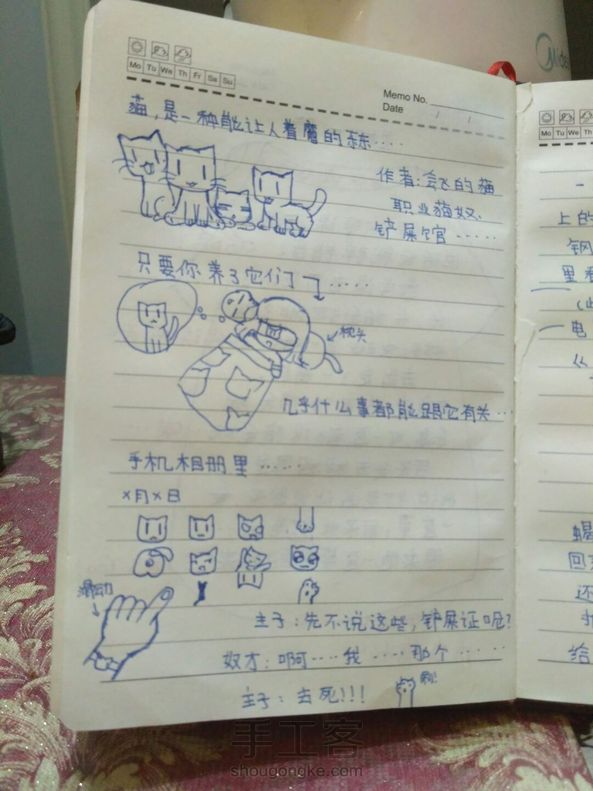 Mo Tu We Th Fr Sa Su
Memo No.
Date / /
猫,是一种能让人着魔的东东····
作者:会飞的猫
职业猫奴、
铲屎官······
只要你养了它们······
枕头
几乎什么事都能跟它有关··
手机相册里······
×月×日
滑动
主子:先不说这些,铲屎证呢?
奴才:啊····我·····那个·····
主子:去死!!!
Midea
Mo Tu We Th
上的
钢
里
电
《
蝎
回
还
给
手工客
shougongke.com